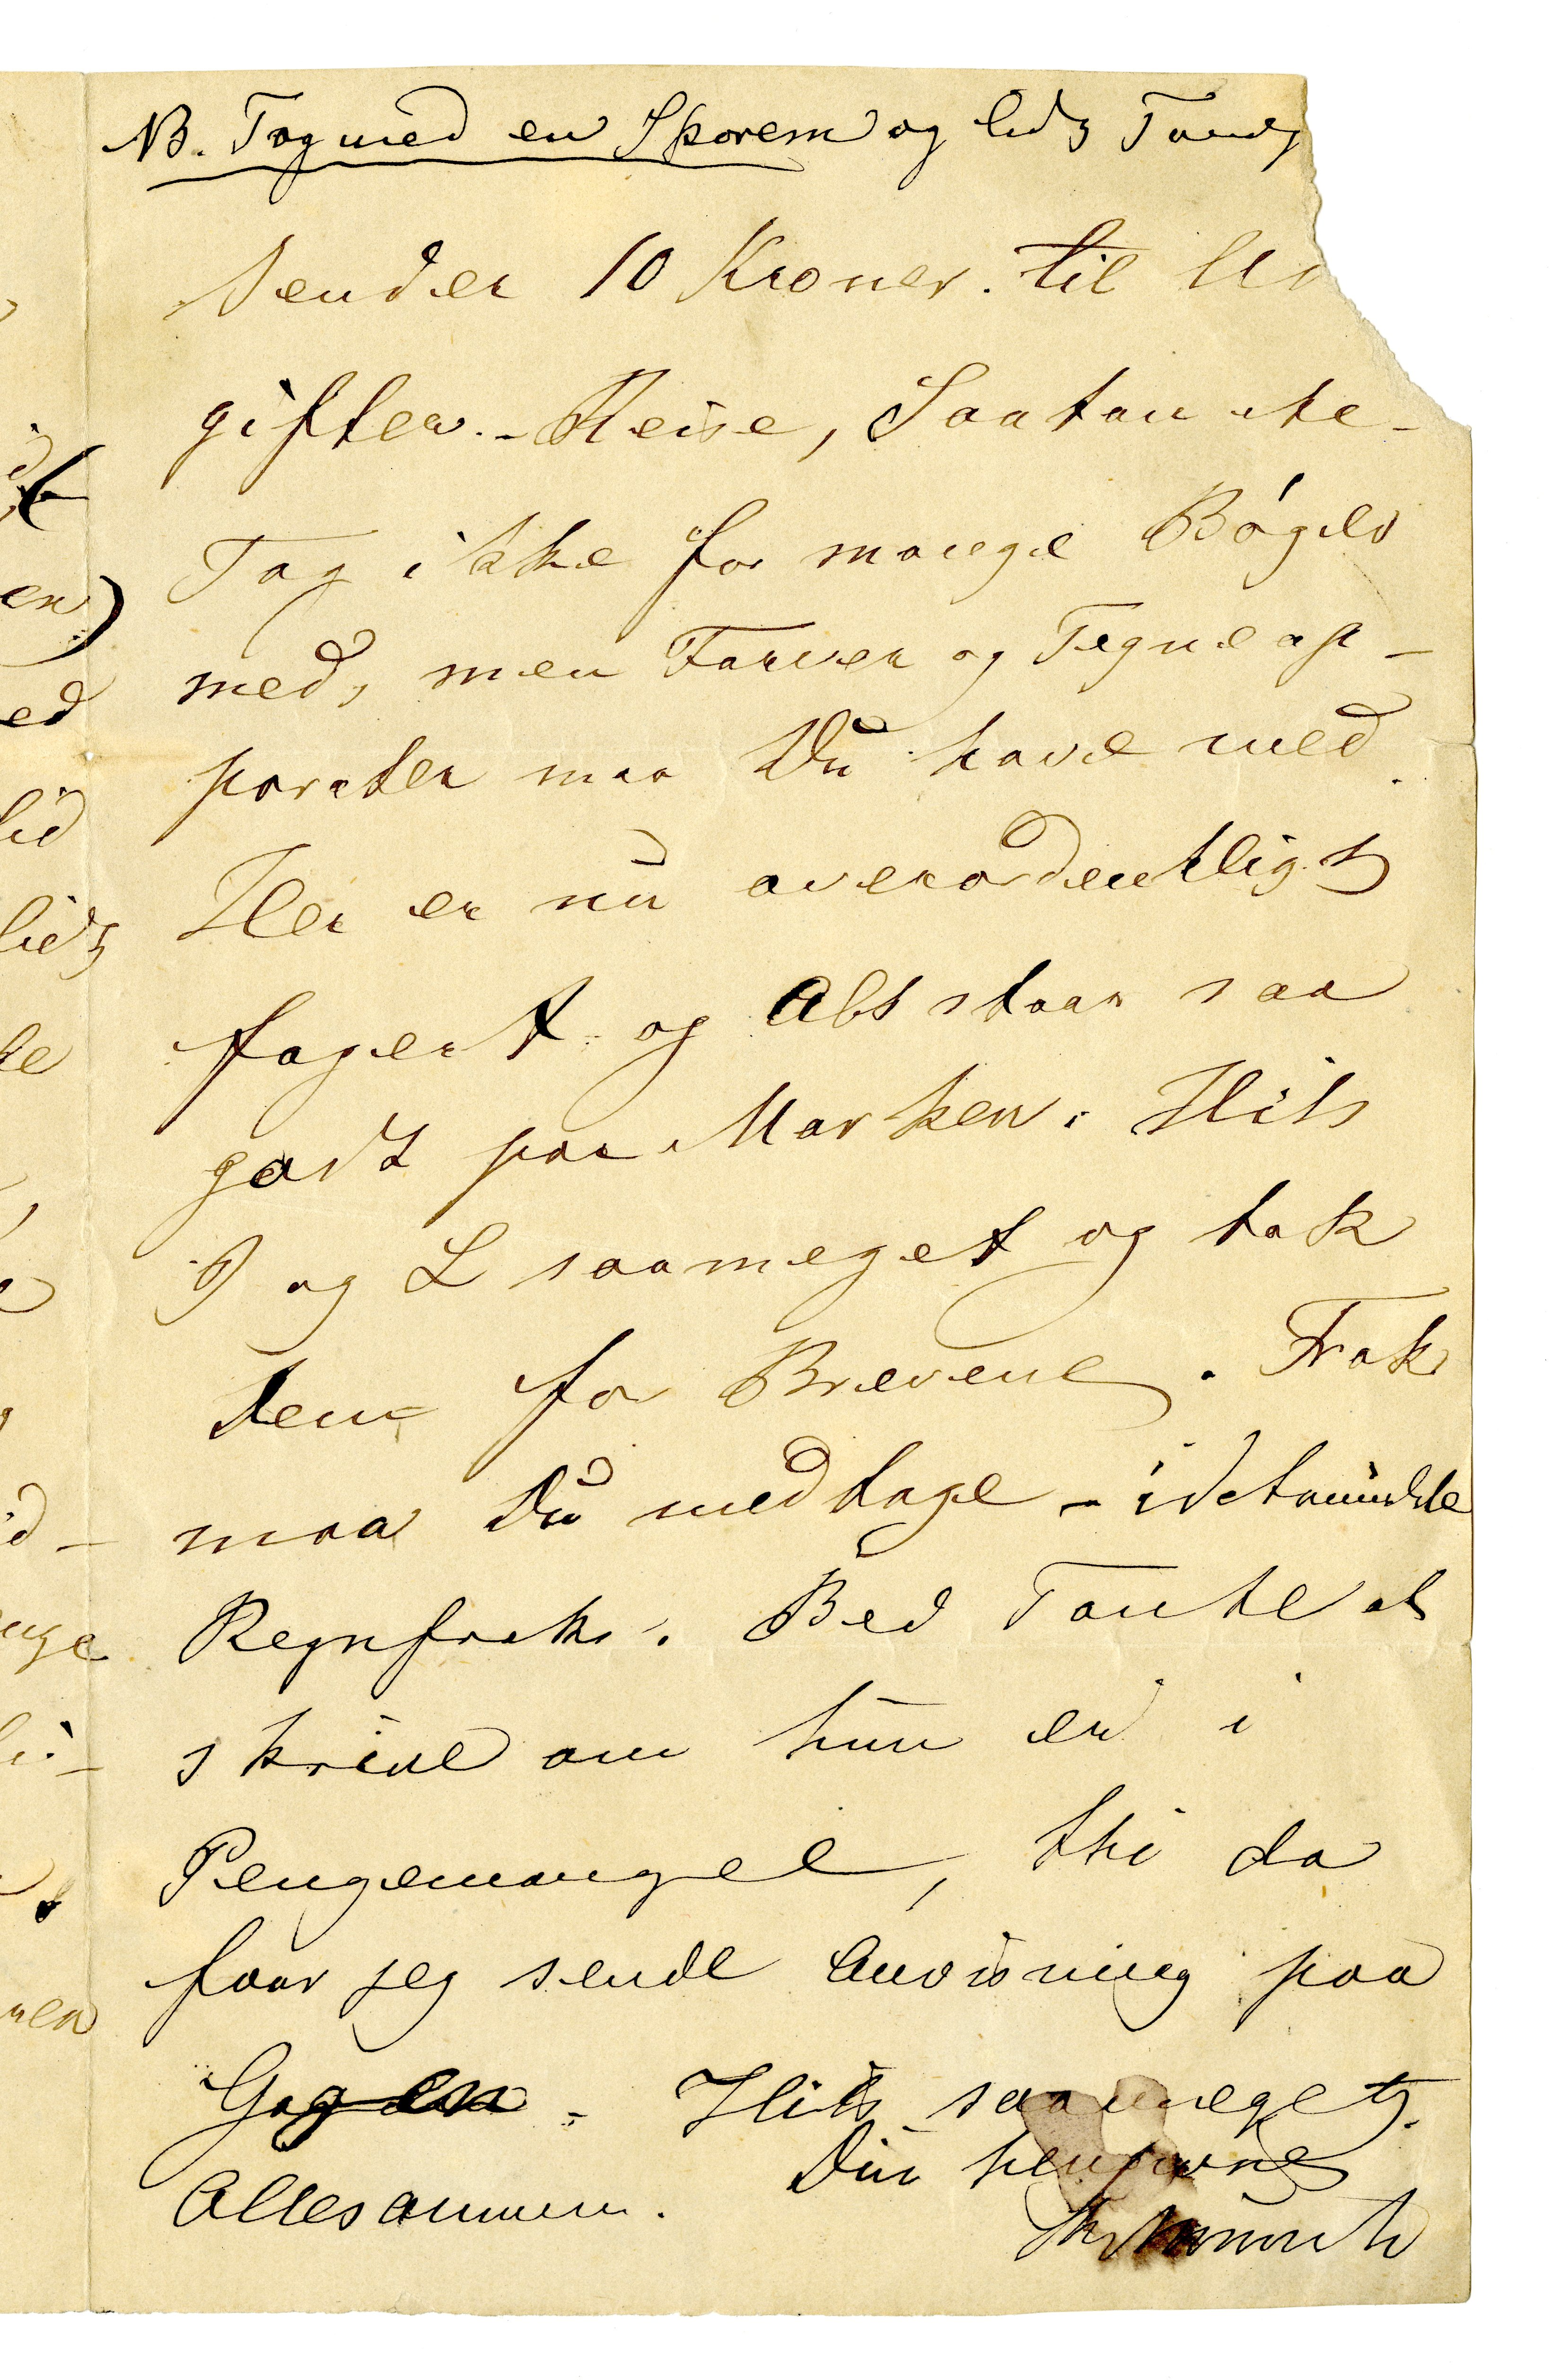 NB. Tag med en Sporem og lidt
Sender 10 Kroner til
gifter. - Reise, Saatan etc -
Tag ikke for mange Bøger
med, men Farver og Tegneap-
parater maa Du have med.
Her er nu overordentligt
fagert og Alt staar saa
godt paa Marken. Hils
P og L saameget og tak
dem for Brevene. Frak
maa Du medtage - idetmindste
Regnfrak. Bed Tante at
skrive om hun er i
Pengemangel, thi da
faar jeg sende Anvisning paa
Gagen. - Hils saameget
Allesammen.
Din hengivne
Munch
en)
ed
tid
lidt